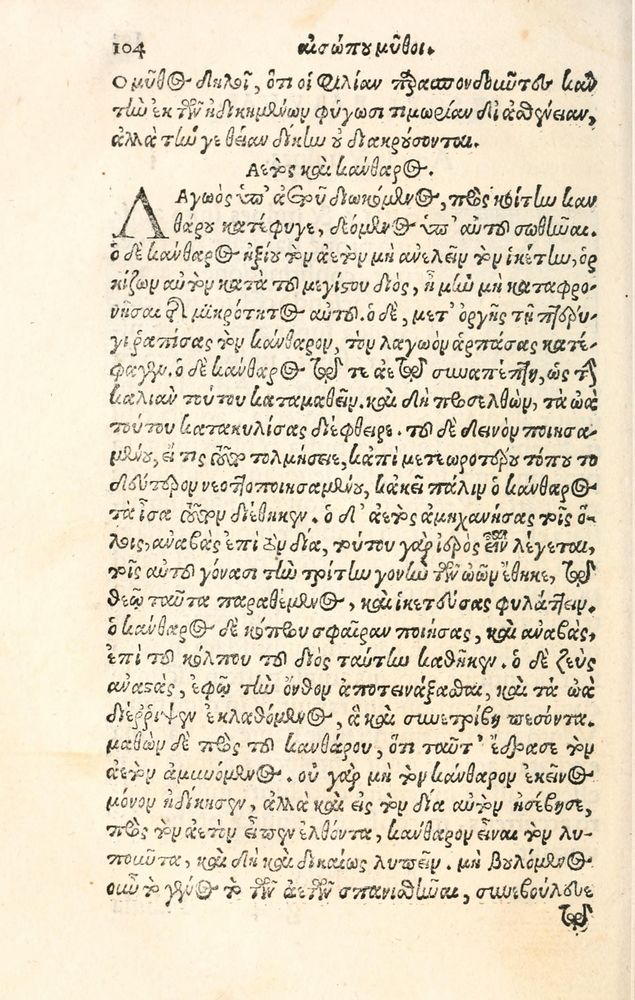 104 αἰσώπου μῦθοι.
Ὁ μῦθος δηλοῖ, ὅτι οἱ φιλίαν παρασπονδοῦντες κἂν
τὴν ἐκ τῶν ἠδικημένων φύγωσι τιμωρίαν δι' ἀσθένειαν,
ἀλλὰ τήν γε θείαν δίκην οὐ διακρούσονται.
Αετὸς καὶ κάνθαρος.
Λαγωὸς ὑπ' ἀετοῦ διωκόμενος, πρὸς κοίτην καν
θάρου κατέφυγε, δεόμενος ὑπ' αὐτοῦ σωθῆναι.
ὁ δὲ κάνθαρος ἠξίου τὸν ἀετὸν μὴ ἀνελεῖν τὸν ἱκέτην, ὁρ
κίζων αὐτὸν κατὰ τοῦ μεγίστου διὸς, ἦ μὴν μὴ καταφρο-
νῆσαι τῆς μικρότητος αὐτοῦ. ὁ δὲ, μετ' ὀργῆς τῇ πτέρυ-
γι ῥαπίσας τὸν κάνθαρον, τὸν λαγωὸν ἁρπάσας κατέ-
φαγεν. ὁ δὲ κάνθαρος τῷ τε ἀετῷ συναπέπτη, ὡς τὴν
καλιὰν τούτου καταμαθεῖν. καὶ δὴ προσελθὼν, τὰ ὠὰ
τούτου κατακυλίσας διέφθειρε. τοῦ δὲ δεινὸν ποιησα-
μένου, εἴ τις τοῦτο τολμήσειε, κἀπὶ μετεωροτέρου τόπου τὸ
δεύτερον νεοττοποιησαμένου, κἀκεῖ πάλιν ὁ κάνθαρος
τὰ ἶσα τοῦτον διέθηκεν. ὁ δ' ἀετὸς ἀμηχανήσας τοῖς ὅ-
λοις, ἀναβὰς ἐπὶ τὸν δία, τούτου γὰρ ἱερὸς εἶναι λέγεται,
τοῖς αὐτοῦ γόνασι τὴν τρίτην γονὴν τῶν ὠῶν ἔθηκε, τῷ
θεῷ ταῦτα παραθέμενος, καὶ ἱκετεύσας φυλάττειν.
ὁ κάνθαρος δὲ κόπρου σφαῖραν ποιήσας, καὶ ἀναβὰς,
ἐπὶ τοῦ κόλπου τοῦ διὸς ταύτην καθῆκεν. ὁ δὲ ζεὺς
ἀναστὰς, ἐφ' ᾧ τὴν ὄνθον ἀποτινάξασθαι, καὶ τὰ ὠὰ
διέρριψεν ἐκλαθόμενος, ἃ καὶ συνετρίβη πεσόντα.
μαθὼν δὲ πρὸς τοῦ κανθάρου, ὅτι ταῦτ' ἔδρασε τὸν
ἀετὸν ἀμυνόμενος. οὐ γὰρ μὴ τὸν κάνθαρον ἐκεῖνος
μόνον ἠδίκησεν, ἀλλὰ καὶ εἰς τὸν δία αὐτὸν ἠσέβησε,
πρὸς τὸν ἀετὸν εἶπεν ἐλθόντα, κάνθαρον εἶναι τὸν λυ-
ποῦντα, καὶ δὴ καὶ δικαίως λυπεῖν. μὴ βουλόμενος
οὖν τὸ γένος τὸ τῶν ἀετῶν σπανισθῆναι, συνεβούλευε
τῷ